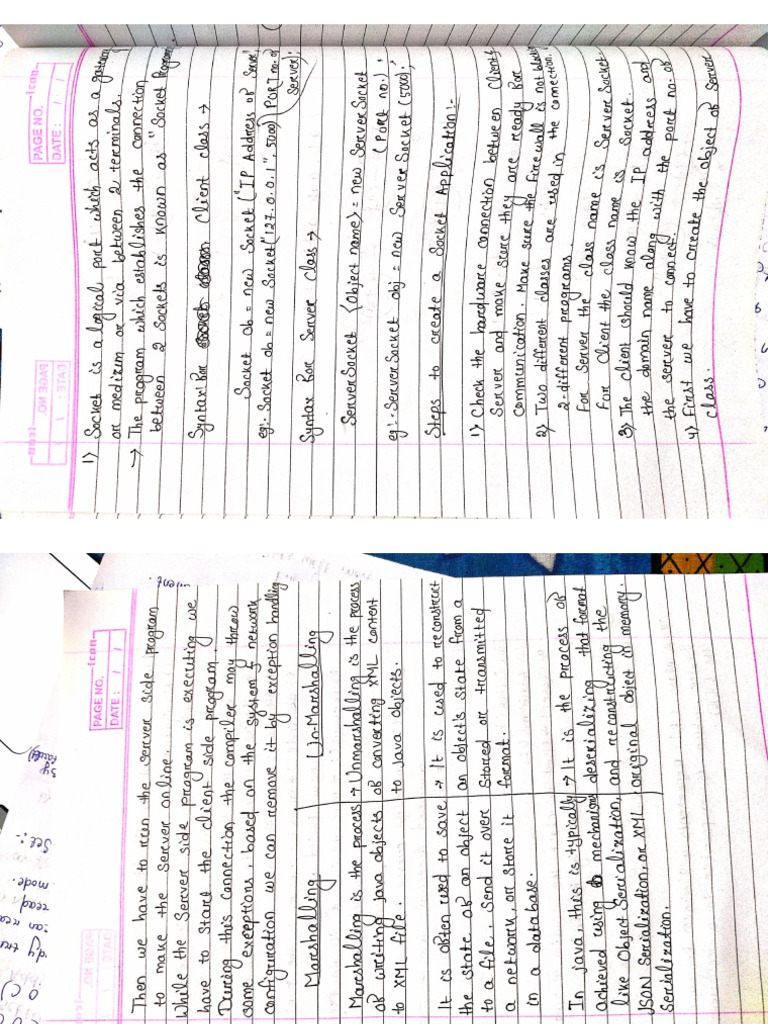 Icon
PAGE NO.
DATE: / /
1) Socket is a logical port which acts as a gateway
or medium or via between 2 terminals.
→ The program which establishes the connection
between 2 Sockets is known as "Socket Program".
Syntax: For Client class →
Socket ob = new Socket ("IP Address of Server",
PORT no. of Server);
eg:- Socket ob = new Socket ("127.0.0.1", 5000)
Syntax For Server Class →
ServerSocket <Object name> = new ServerSocket
(Port no.);
eg:- ServerSocket obj = new ServerSocket (5000);
Steps to create a Socket Application:-
1) Check the hardware connection between Client &
Server and make sure they are ready for
communication. Make sure the firewall is not blocking
the connection.
2) Two different classes are used in
2-different programs.
For Server the class name is Server Socket
For Client the class name is Socket.
3) The client should know the IP address and
the domain name along with the port no. of
the server to connect.
4) First we have to create the object of Server
class.
Icon
PAGE NO.
DATE: / /
Then we have to run the server side program
to make the server online.
While the Server side program is executing we
have to start the client side program.
During this connection the compiler may throw
some exceptions based on the system & network
configuration we can remove it by exception handling
Marshalling Un-Marshalling
Marshalling is the process → Unmarshalling is the process
of writting java objects of converting XML content
to XML file. to Java objects.
It is often used to save → It is used to reconstruct
the state of an object an object's state from a
to a file, send it over stored or transmitted
a network, or store it format.
in a database.
In java, this is typically → It is the process of
achieved using mechanisms deserializing that format
like Object Serialization, and reconstructing the
JSON Serialization, or XML original object in memory.
Serialization.